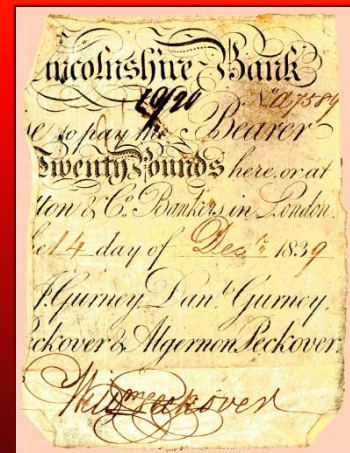 incolnshire Bank
No. a7589
e to pay the Bearer
Twenty Pounds here, or at
tton & Co. Bankers in London.
he 14 day of Decr. 1839
J. Gurney, Danl. Gurney,
eckover & Algernon Peckover.
Peckover